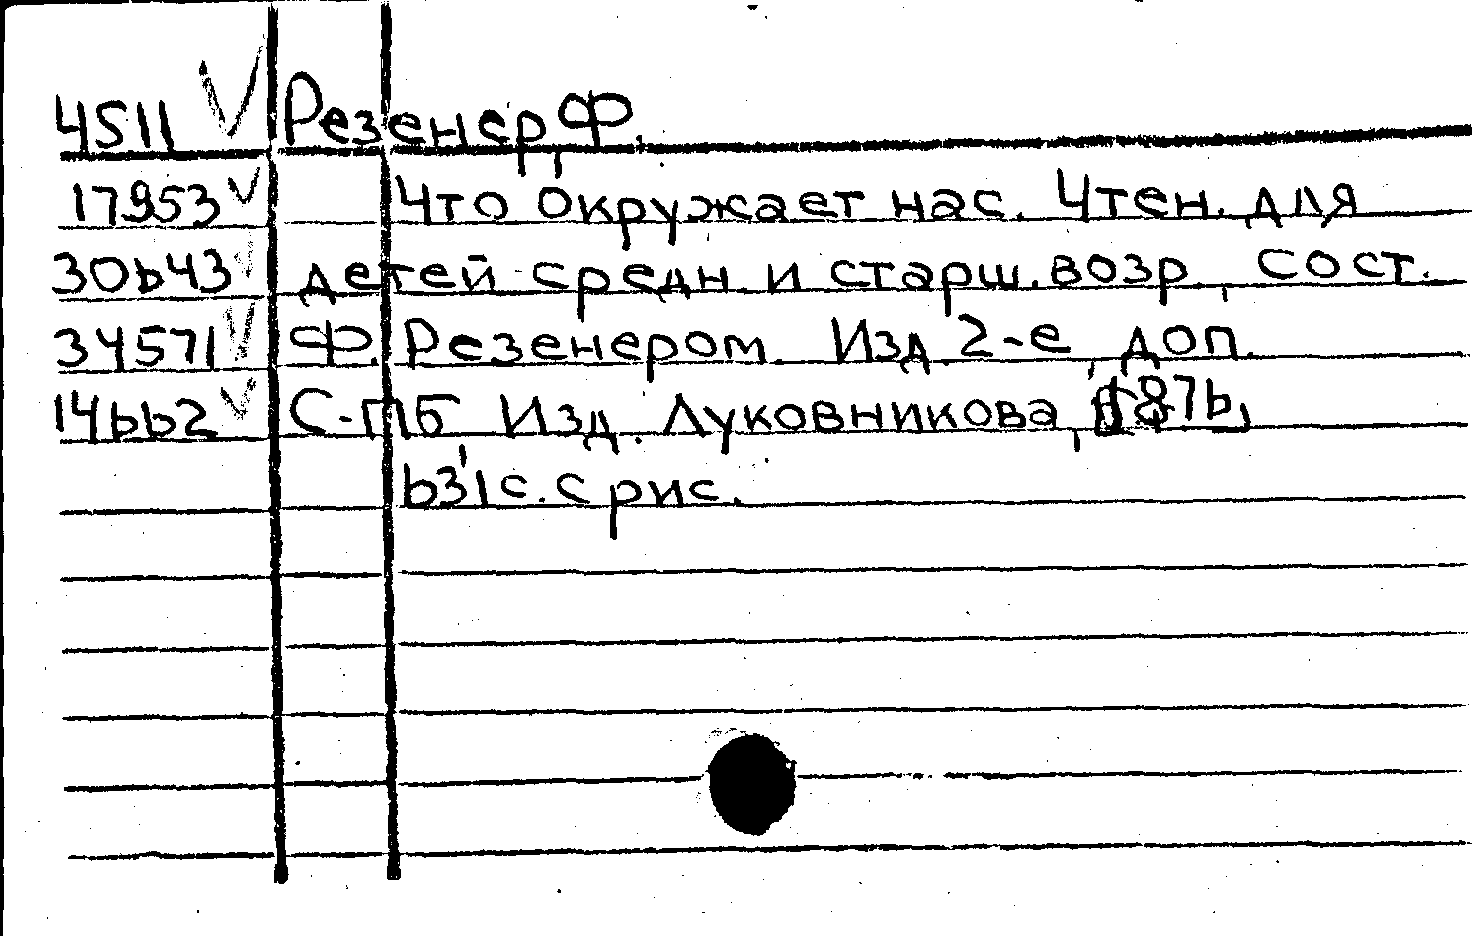 4511 Резенер, Ф.
17953 Что окружает нас. Чтен. для
30643 детей средн. и старш. возр., сост.
34571 Ф. Резенером. Изд. 2-е, доп.
14662 С-ПБ Изд. Луковникова, 1876,
631 с. с рис.